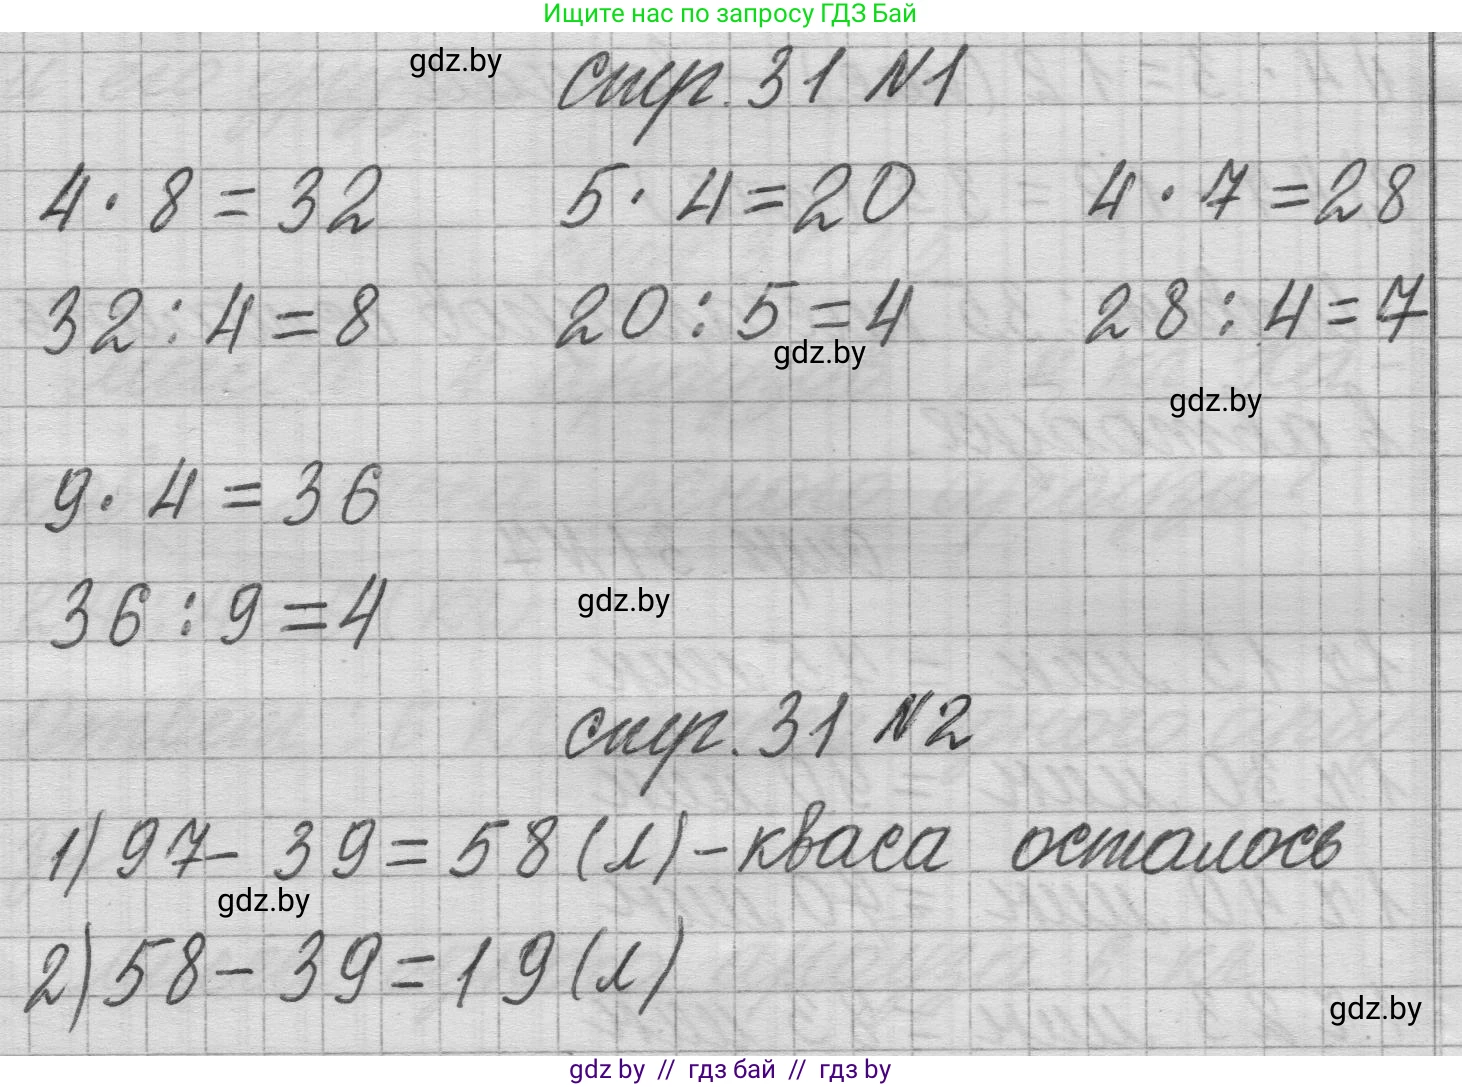 Ищите нас по запросу ГДЗ Бай
gdz.by
стр. 31 №1
4 · 8 = 32 5 · 4 = 20 4 · 7 = 28
32 : 4 = 8 20 : 5 = 4 28 : 4 = 7
gdz.by
gdz.by
9 · 4 = 36
36 : 9 = 4
gdz.by
стр. 31 №2
1) 97 - 39 = 58 (л) - кваса осталось
gdz.by
2) 58 - 39 = 19 (л)
gdz.by
gdz by // гдз бай // гдз by